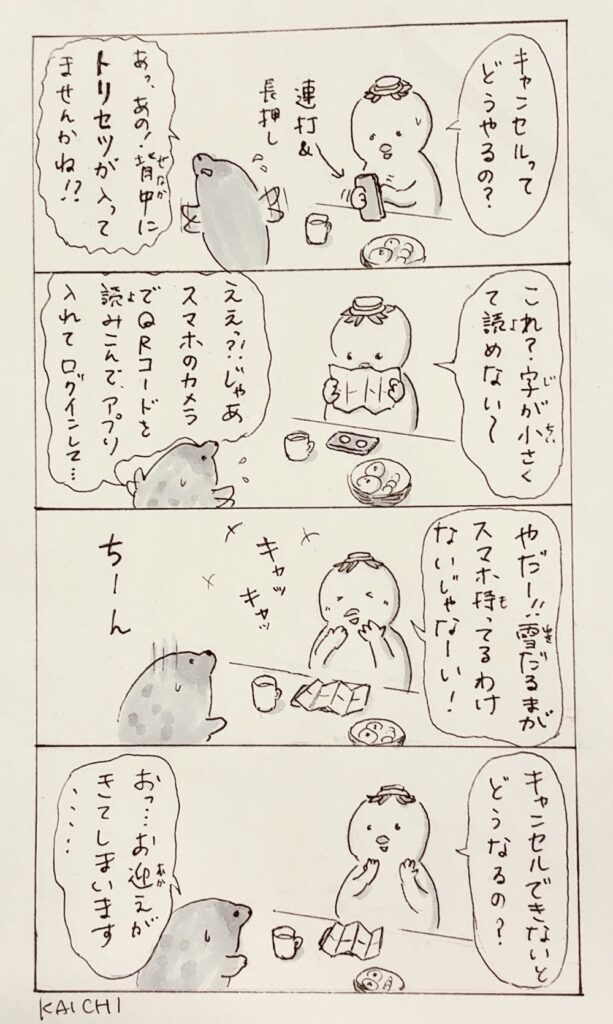 キャンセルって
どうやるの?
連打&
長押し
あっ、あの!背中に
せなか
トリセツが入って
ませんかね!?
これ?字が小さく
じ
ちい
て読めない〜
よ
ええっ?!じゃあ
スマホのカメラ
でQRコードを
読みこんで、アプリ
よ
入れてログインして…
やだー!!雪だるまが
ゆき
スマホ持ってるわけ
も
ないじゃなーい!
キャッ
キャッ
ちーん
キャンセルできないと
どうなるの?
おっ…お迎えが
むか
きてしまいます
.....
KAICHI